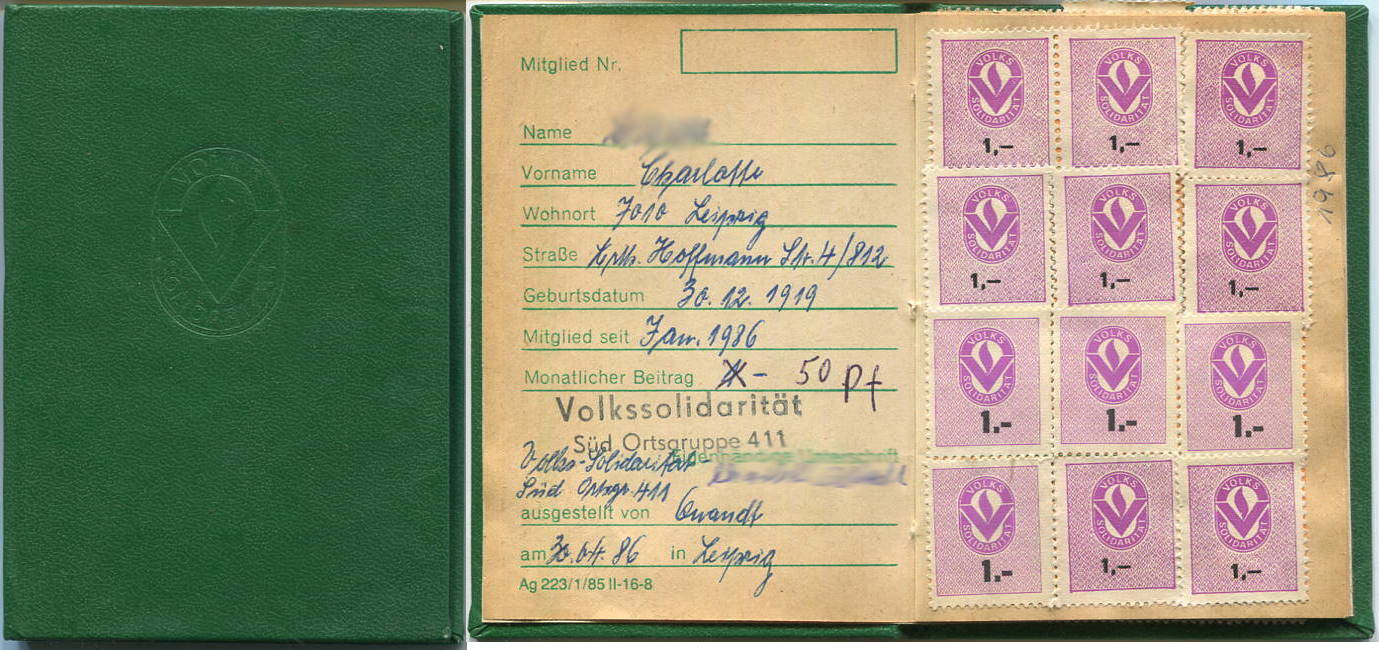 VOLKS
SOLIDARITÄT
Mitglied Nr.
Name
Vorname Charlotte
Wohnort 7010 Leipzig
Straße Hoffmann Str. 4/812
Geburtsdatum 30.12.1919
Mitglied seit Jan. 1986
Monatlicher Beitrag - 50 Pf
Volkssolidarität
Süd Ortsgruppe 411
Eigenhändige Unterschrift
Volks-Solidarität
Süd Ortsgr. 411
ausgestellt von Quandt
am 30.04.86 in Leipzig
Ag 223/1/85 II-16-8
VOLKS SOLIDARITÄT 1,–
VOLKS SOLIDARITÄT 1,–
VOLKS SOLIDARITÄT 1,–
1986
VOLKS SOLIDARITÄT 1,–
VOLKS SOLIDARITÄT 1,–
VOLKS SOLIDARITÄT 1,–
VOLKS SOLIDARITÄT 1.-
VOLKS SOLIDARITÄT 1.-
VOLKS SOLIDARITÄT 1.-
VOLKS SOLIDARITÄT 1.-
VOLKS SOLIDARITÄT 1,–
VOLKS SOLIDARITÄT 1,–